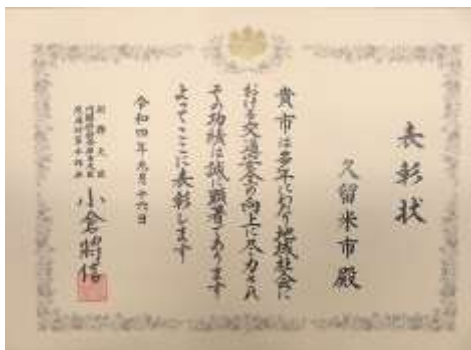 表彰状
久留米市殿
貴市は多年にわたり地域社会に
おける交通安全の向上に尽力され
その功績は誠に顕著であります
よってここに表彰します
令和四年九月十六日
小倉將信